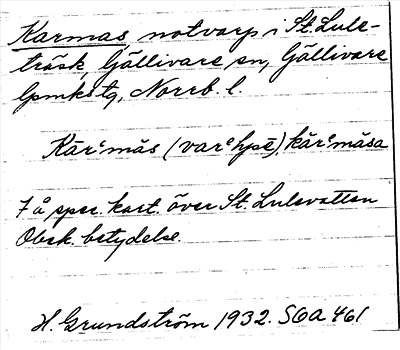 Karmas notvarp i St. Lule-
träsk, Gällivare sn, Gällivare
lpmks tg, Norrb. l.
Kār̀mās (varhpē), kārmāsa
Få spec. kart. över St. Lulevatten
Obek. betydelse.
H. Grundström 1932. SOA 461